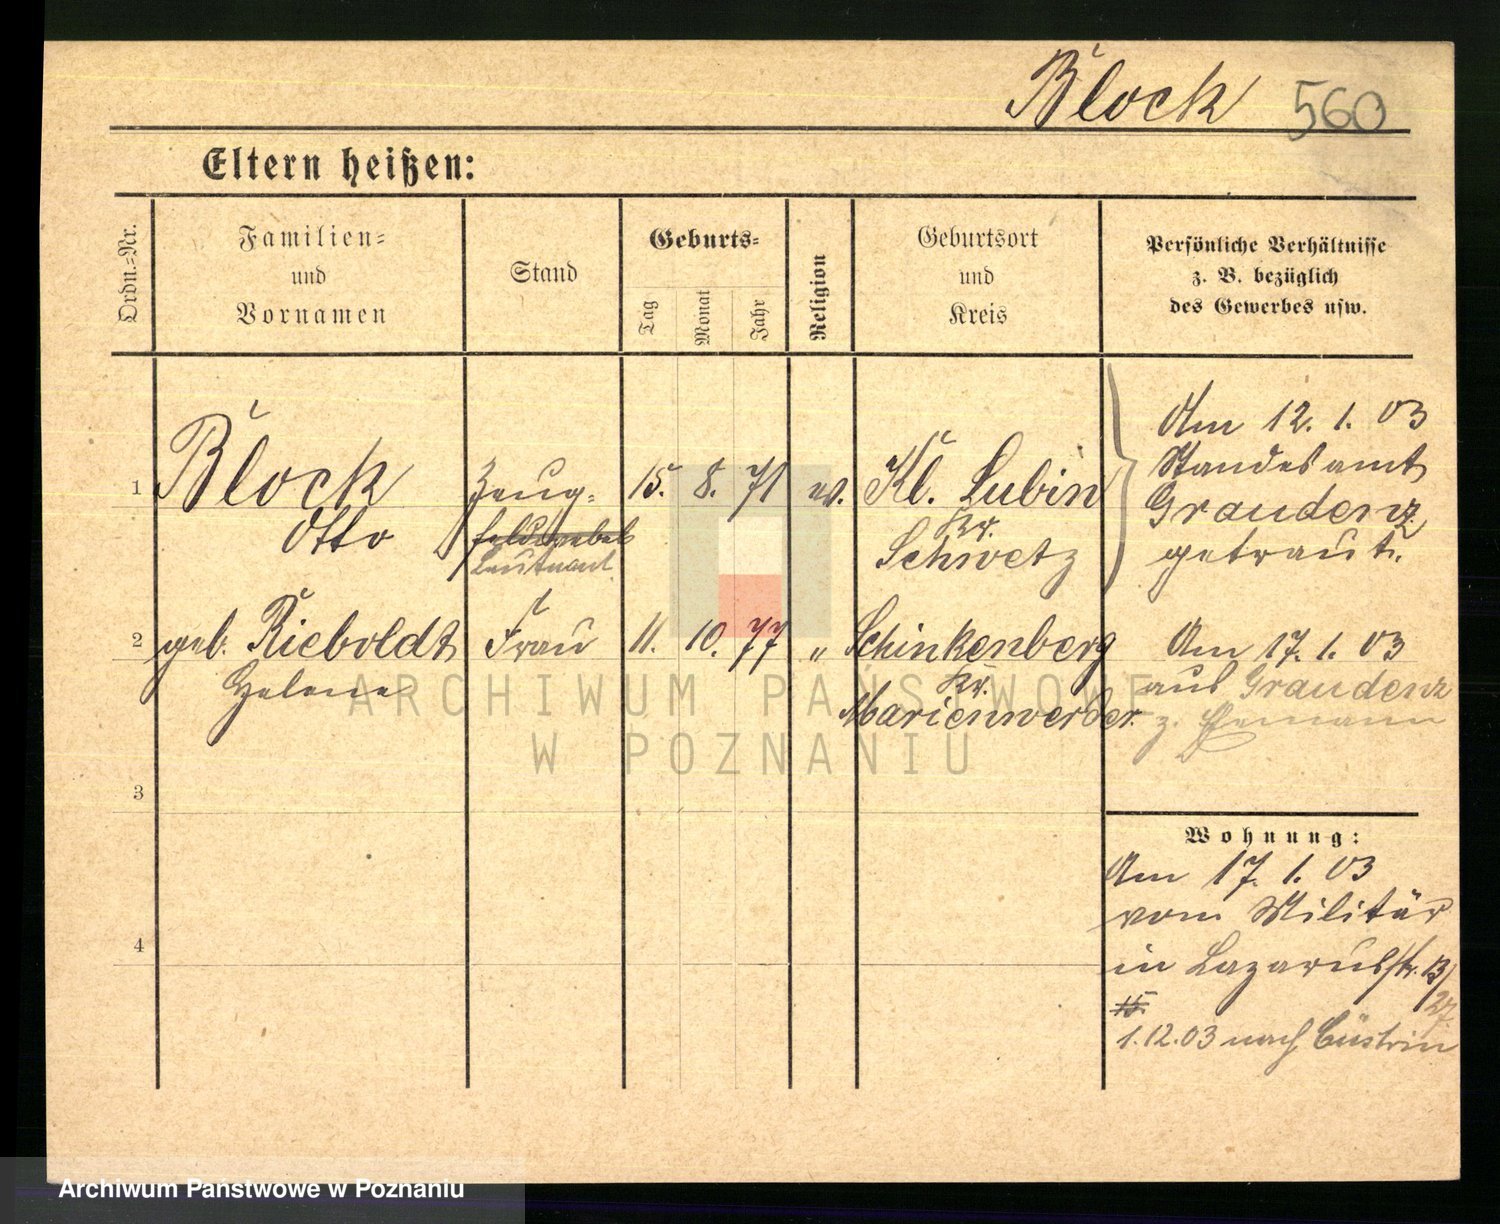 Block 560
Eltern heißen:
Ordn.-Nr.
Familien-
und
Vornamen
Stand
Geburts-
Tag
Monat
Jahr
Religion
Geburtsort
und
Kreis
Persönliche Verhältnisse
z. B. bezüglich
des Gewerbes usw.
1 Block Zeug- 15. 8. 71 ev. Kl. Lubin
Otto feldwebel Kr.
Leutnant Schwetz
Am 12. 1. 03
Standesamt
Graudenz
getraut.
2 geb. Rieboldt Frau 11. 10. 77 " Schinkenberg
Helene Kr.
Marienwerder.
Am 17. 1. 03
aus Graudenz
z. Ehemann
3
4
Wohnung:
Am 17. 1. 03
vom Militär
in Lazarusstr. 13/
15. 27
1.12.03 nach Cüstrin
ARCHIWUM PAŃSTWOWE
W POZNANIU
Archiwum Państwowe w Poznaniu